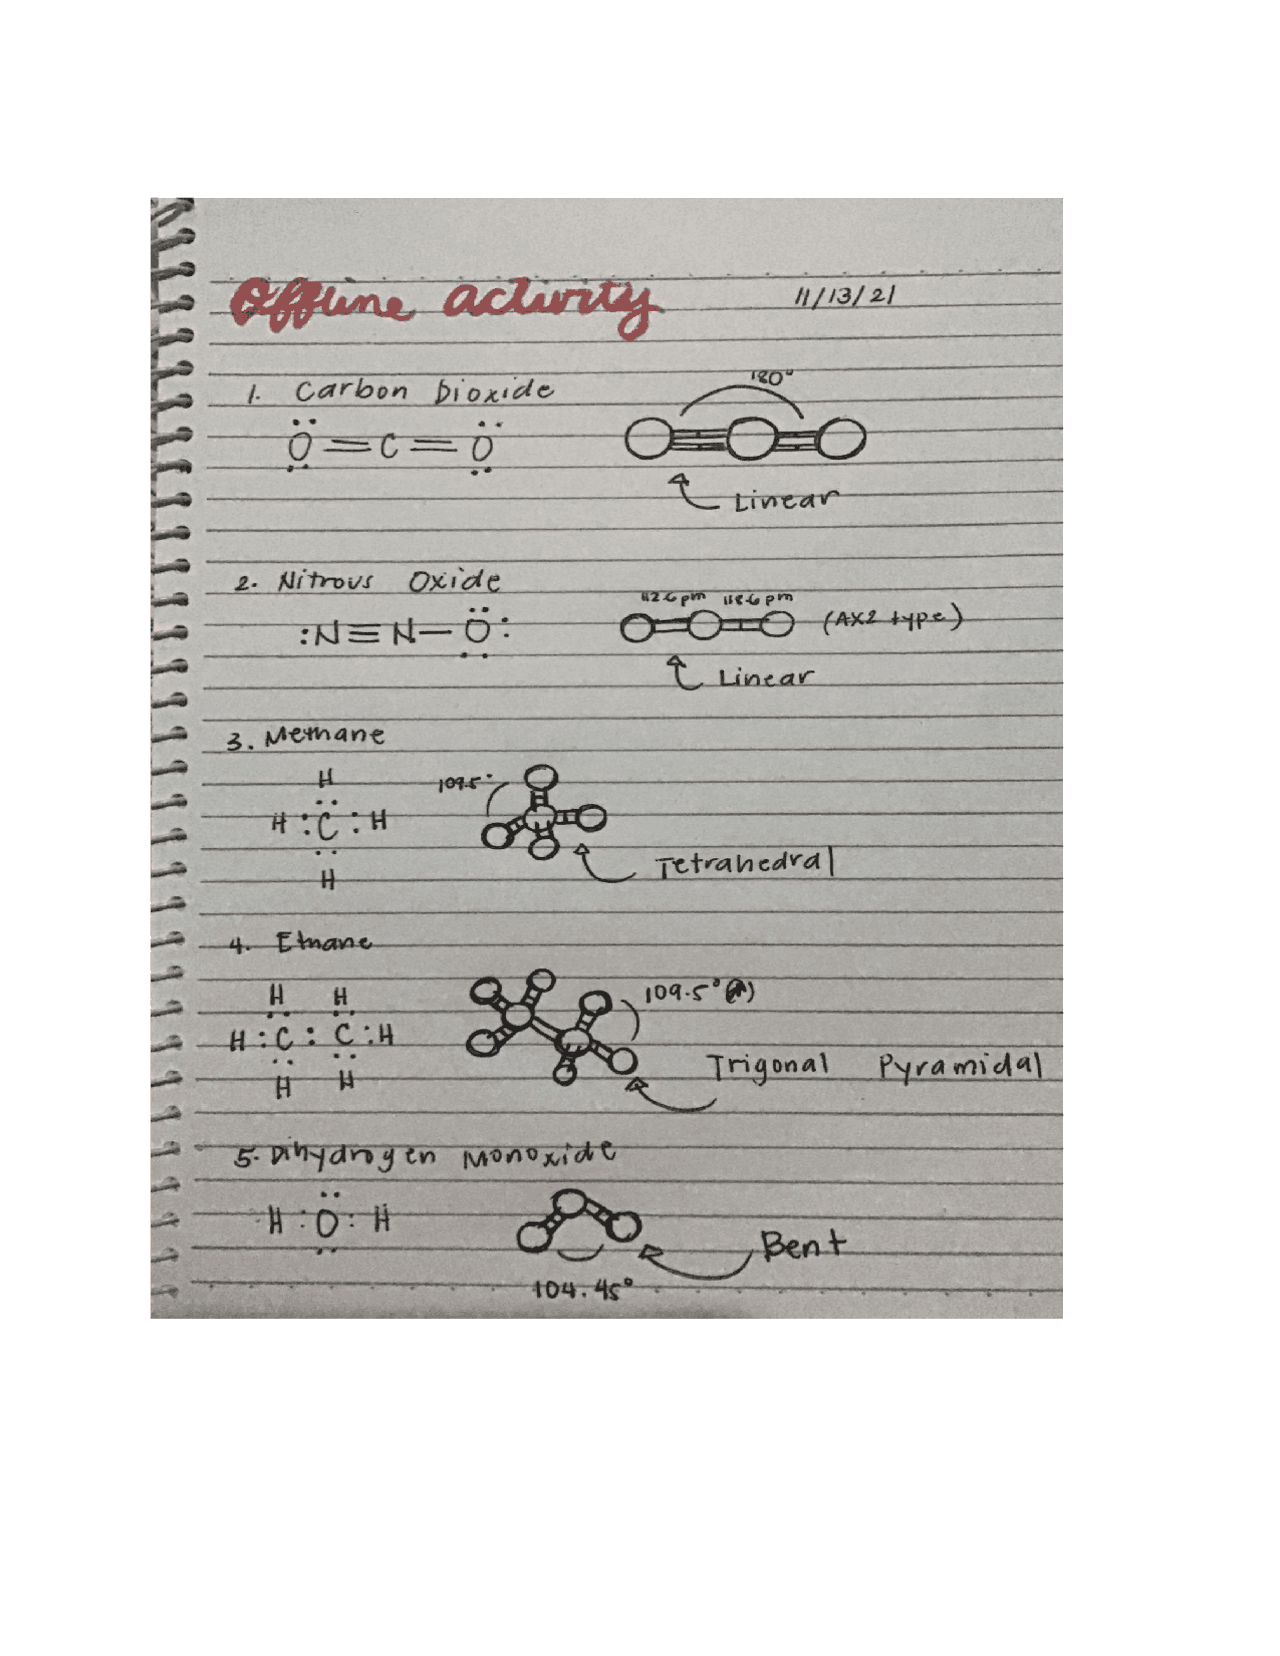 Offline activity 11/13/21
1. Carbon Dioxide
180°
O=C=O
Linear
2. Nitrous Oxide
112.6 pm 118.6 pm
:N≡N—O: (AX2 type)
Linear
3. Methane
H
109.5°
H:C:H
H
Tetrahedral
4. Ethane
H H
109.5°
H:C:C:H
Trigonal Pyramidal
H H
5. Dihydrogen Monoxide
H:O:H
Bent
104.45°